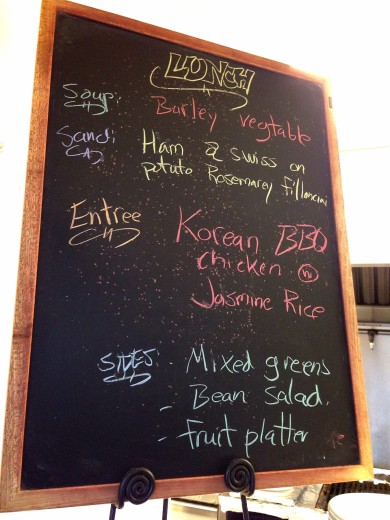 LUNCH
Soup: Barley vegtable
Sand: Ham & Swiss on
potato Rosemarey filloncini
Entree Korean BBQ
chicken w/
Jasmine Rice
SIDES - Mixed greens
- Bean Salad.
- fruit platter